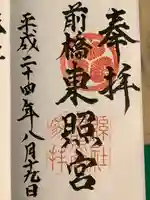 奉拝
前橋東照宮
平成二十四年八月十九日